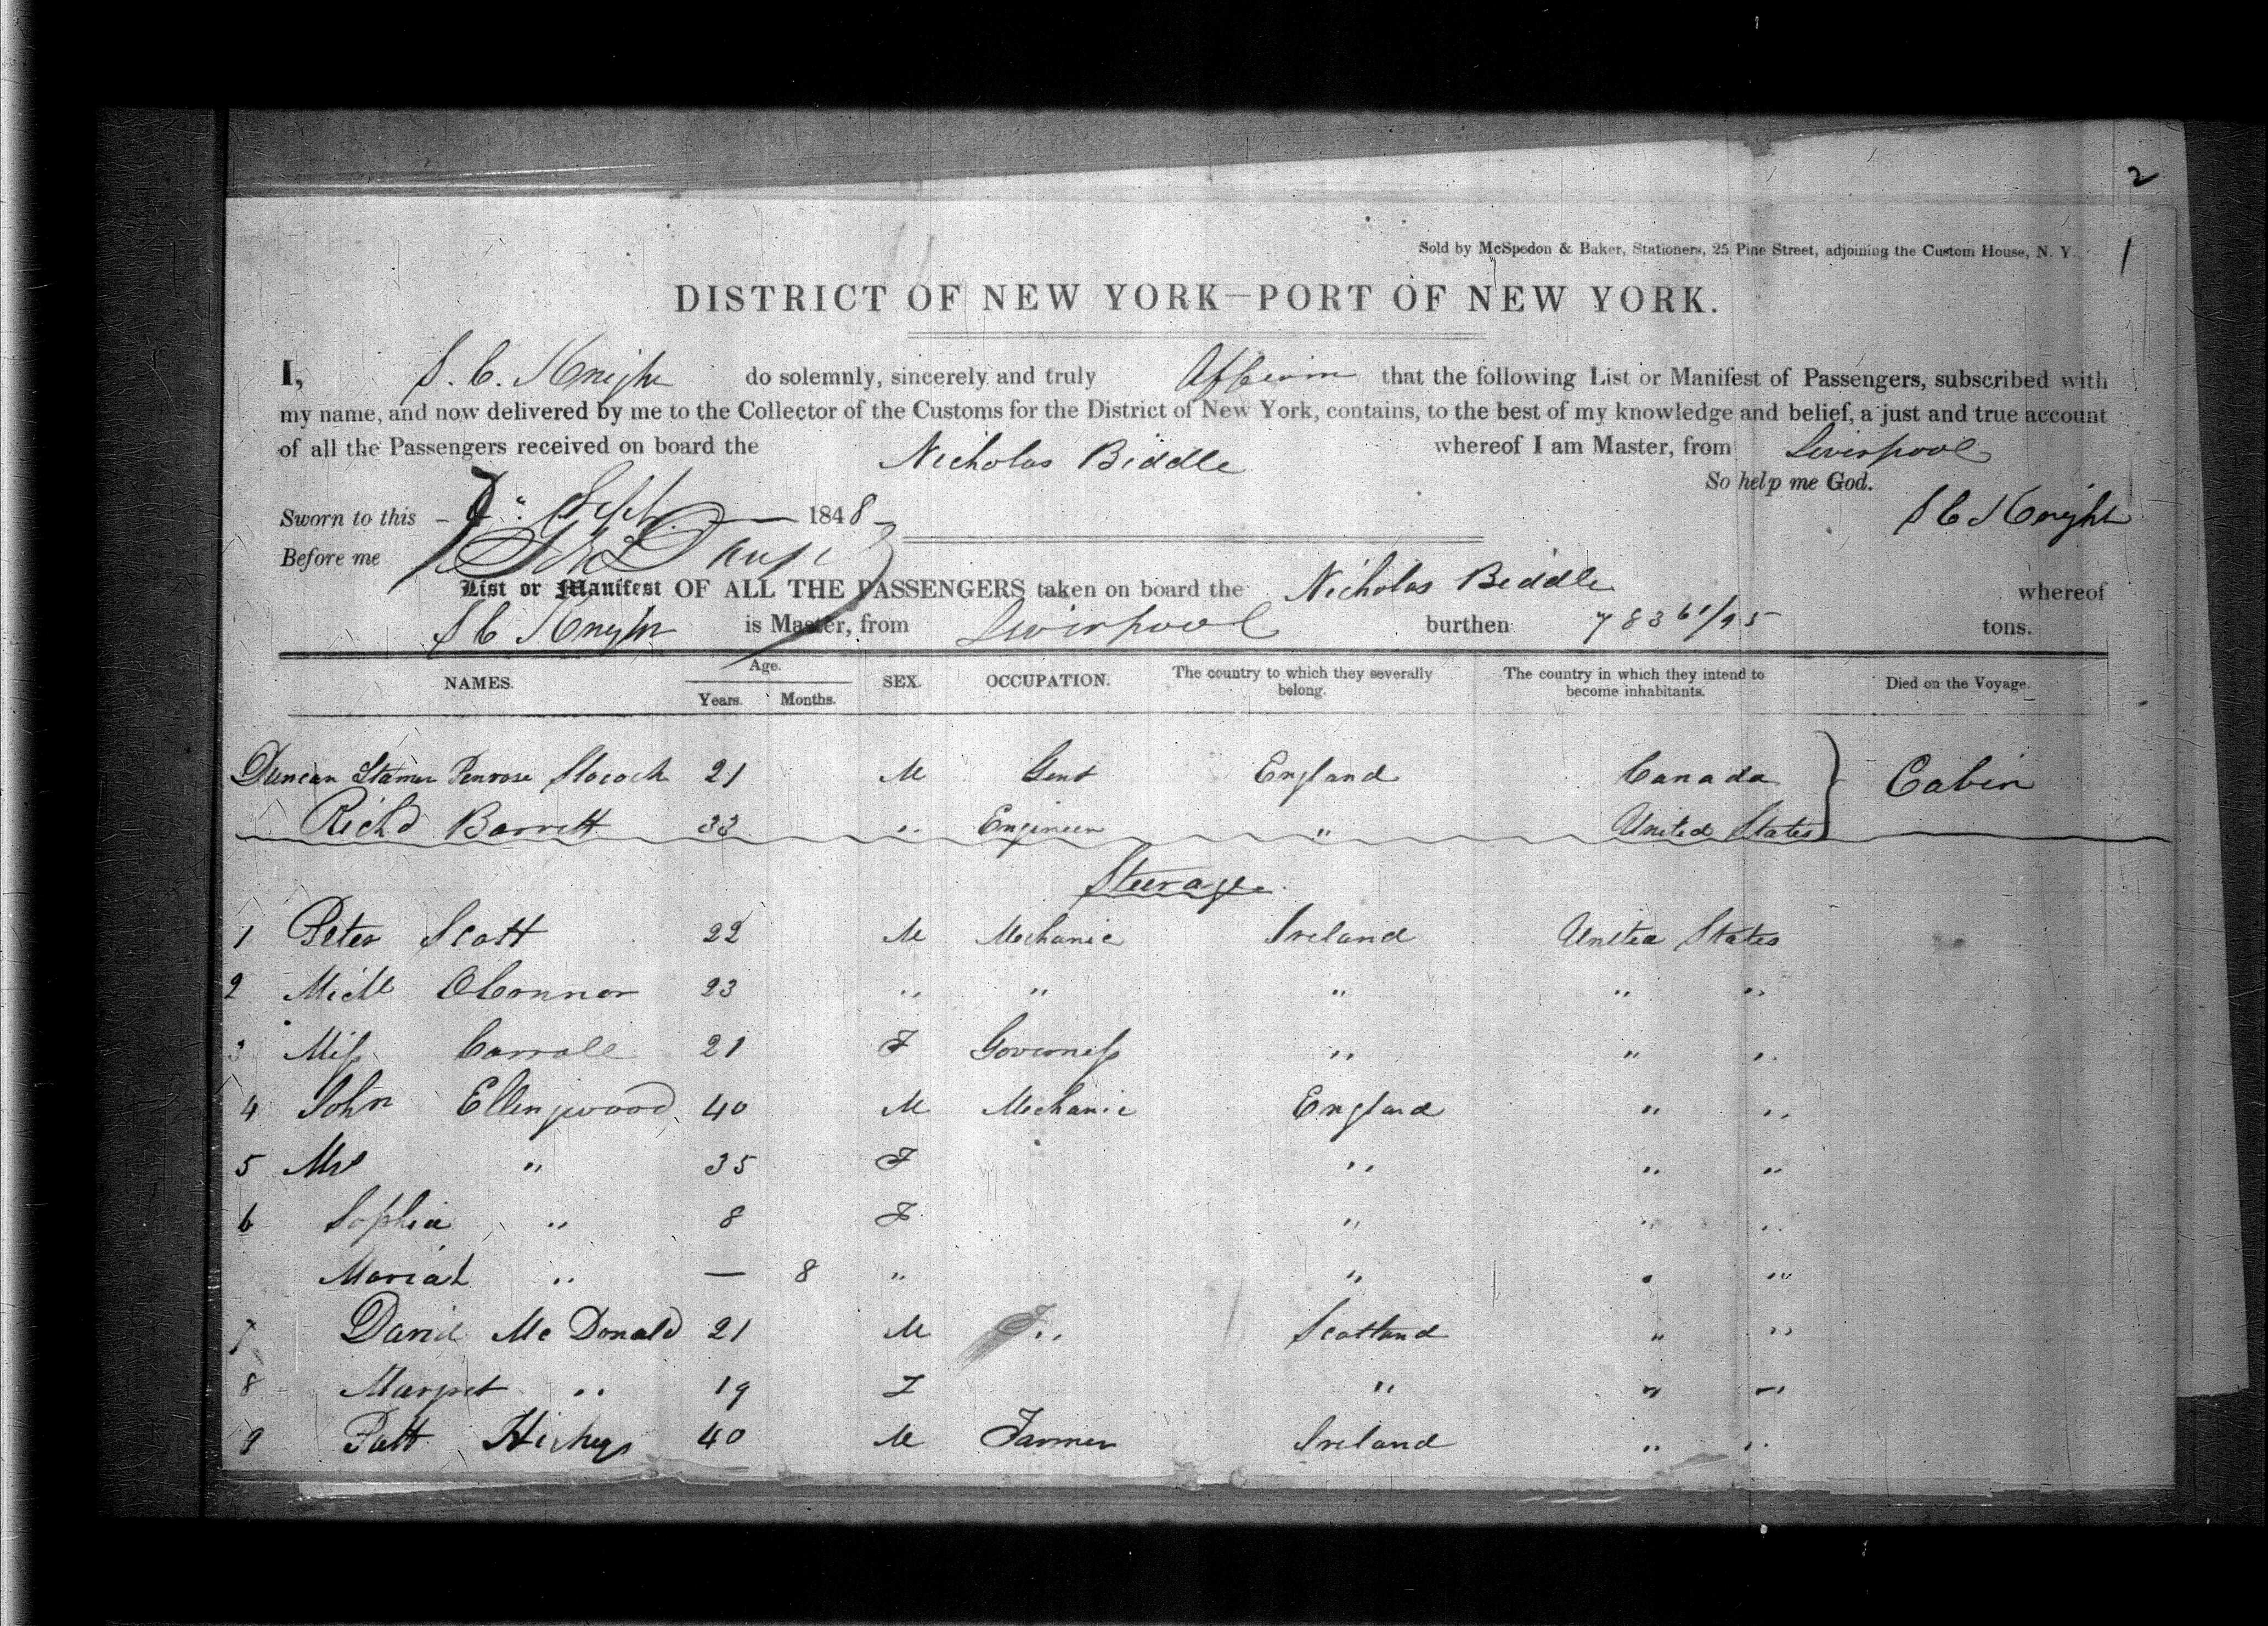 2
Sold by McSpedon & Baker, Stationers, 25 Pine Street, adjoining the Custom House, N. Y.
1
DISTRICT OF NEW YORK—PORT OF NEW YORK.
I, S. C. Knight do solemnly, sincerely and truly Affirm that the following List or Manifest of Passengers, subscribed with
my name, and now delivered by me to the Collector of the Customs for the District of New York, contains, to the best of my knowledge and belief, a just and true account
of all the Passengers received on board the Nicholas Biddle whereof I am Master, from Liverpool
So help me God.
Sworn to this – 7 " Sept. — 1848 S C Knight
Before me
List or Manifest OF ALL THE PASSENGERS taken on board the Nicholas Biddle whereof
S C Knight is Master, from Liverpool burthen 783 61/95 tons.
NAMES. Age. Years. Months. SEX. OCCUPATION. The country to which they severally belong. The country in which they intend to become inhabitants. Died on the Voyage.
Duncan Stamer Penrose Slocock 21 M Gent England Canada } Cabin
Richd Barrett 33 " Engineer " United States
Steerage
1 Peter Scott 22 M Mechanic Ireland United States
2 Michl OConnor 23 " " " " "
3 Miss Carrole 21 F Governess " " "
4 John Ellingwood 40 M Mechanic England " "
5 Mrs " 35 F " " "
6 Sophia " 8 F " " "
Mariah " — 8 " " " "
7 David Mc Donald 21 M " Scotland " "
8 Margret " 19 F " " "
9 Patt Hickey 40 M Farmer Ireland " "